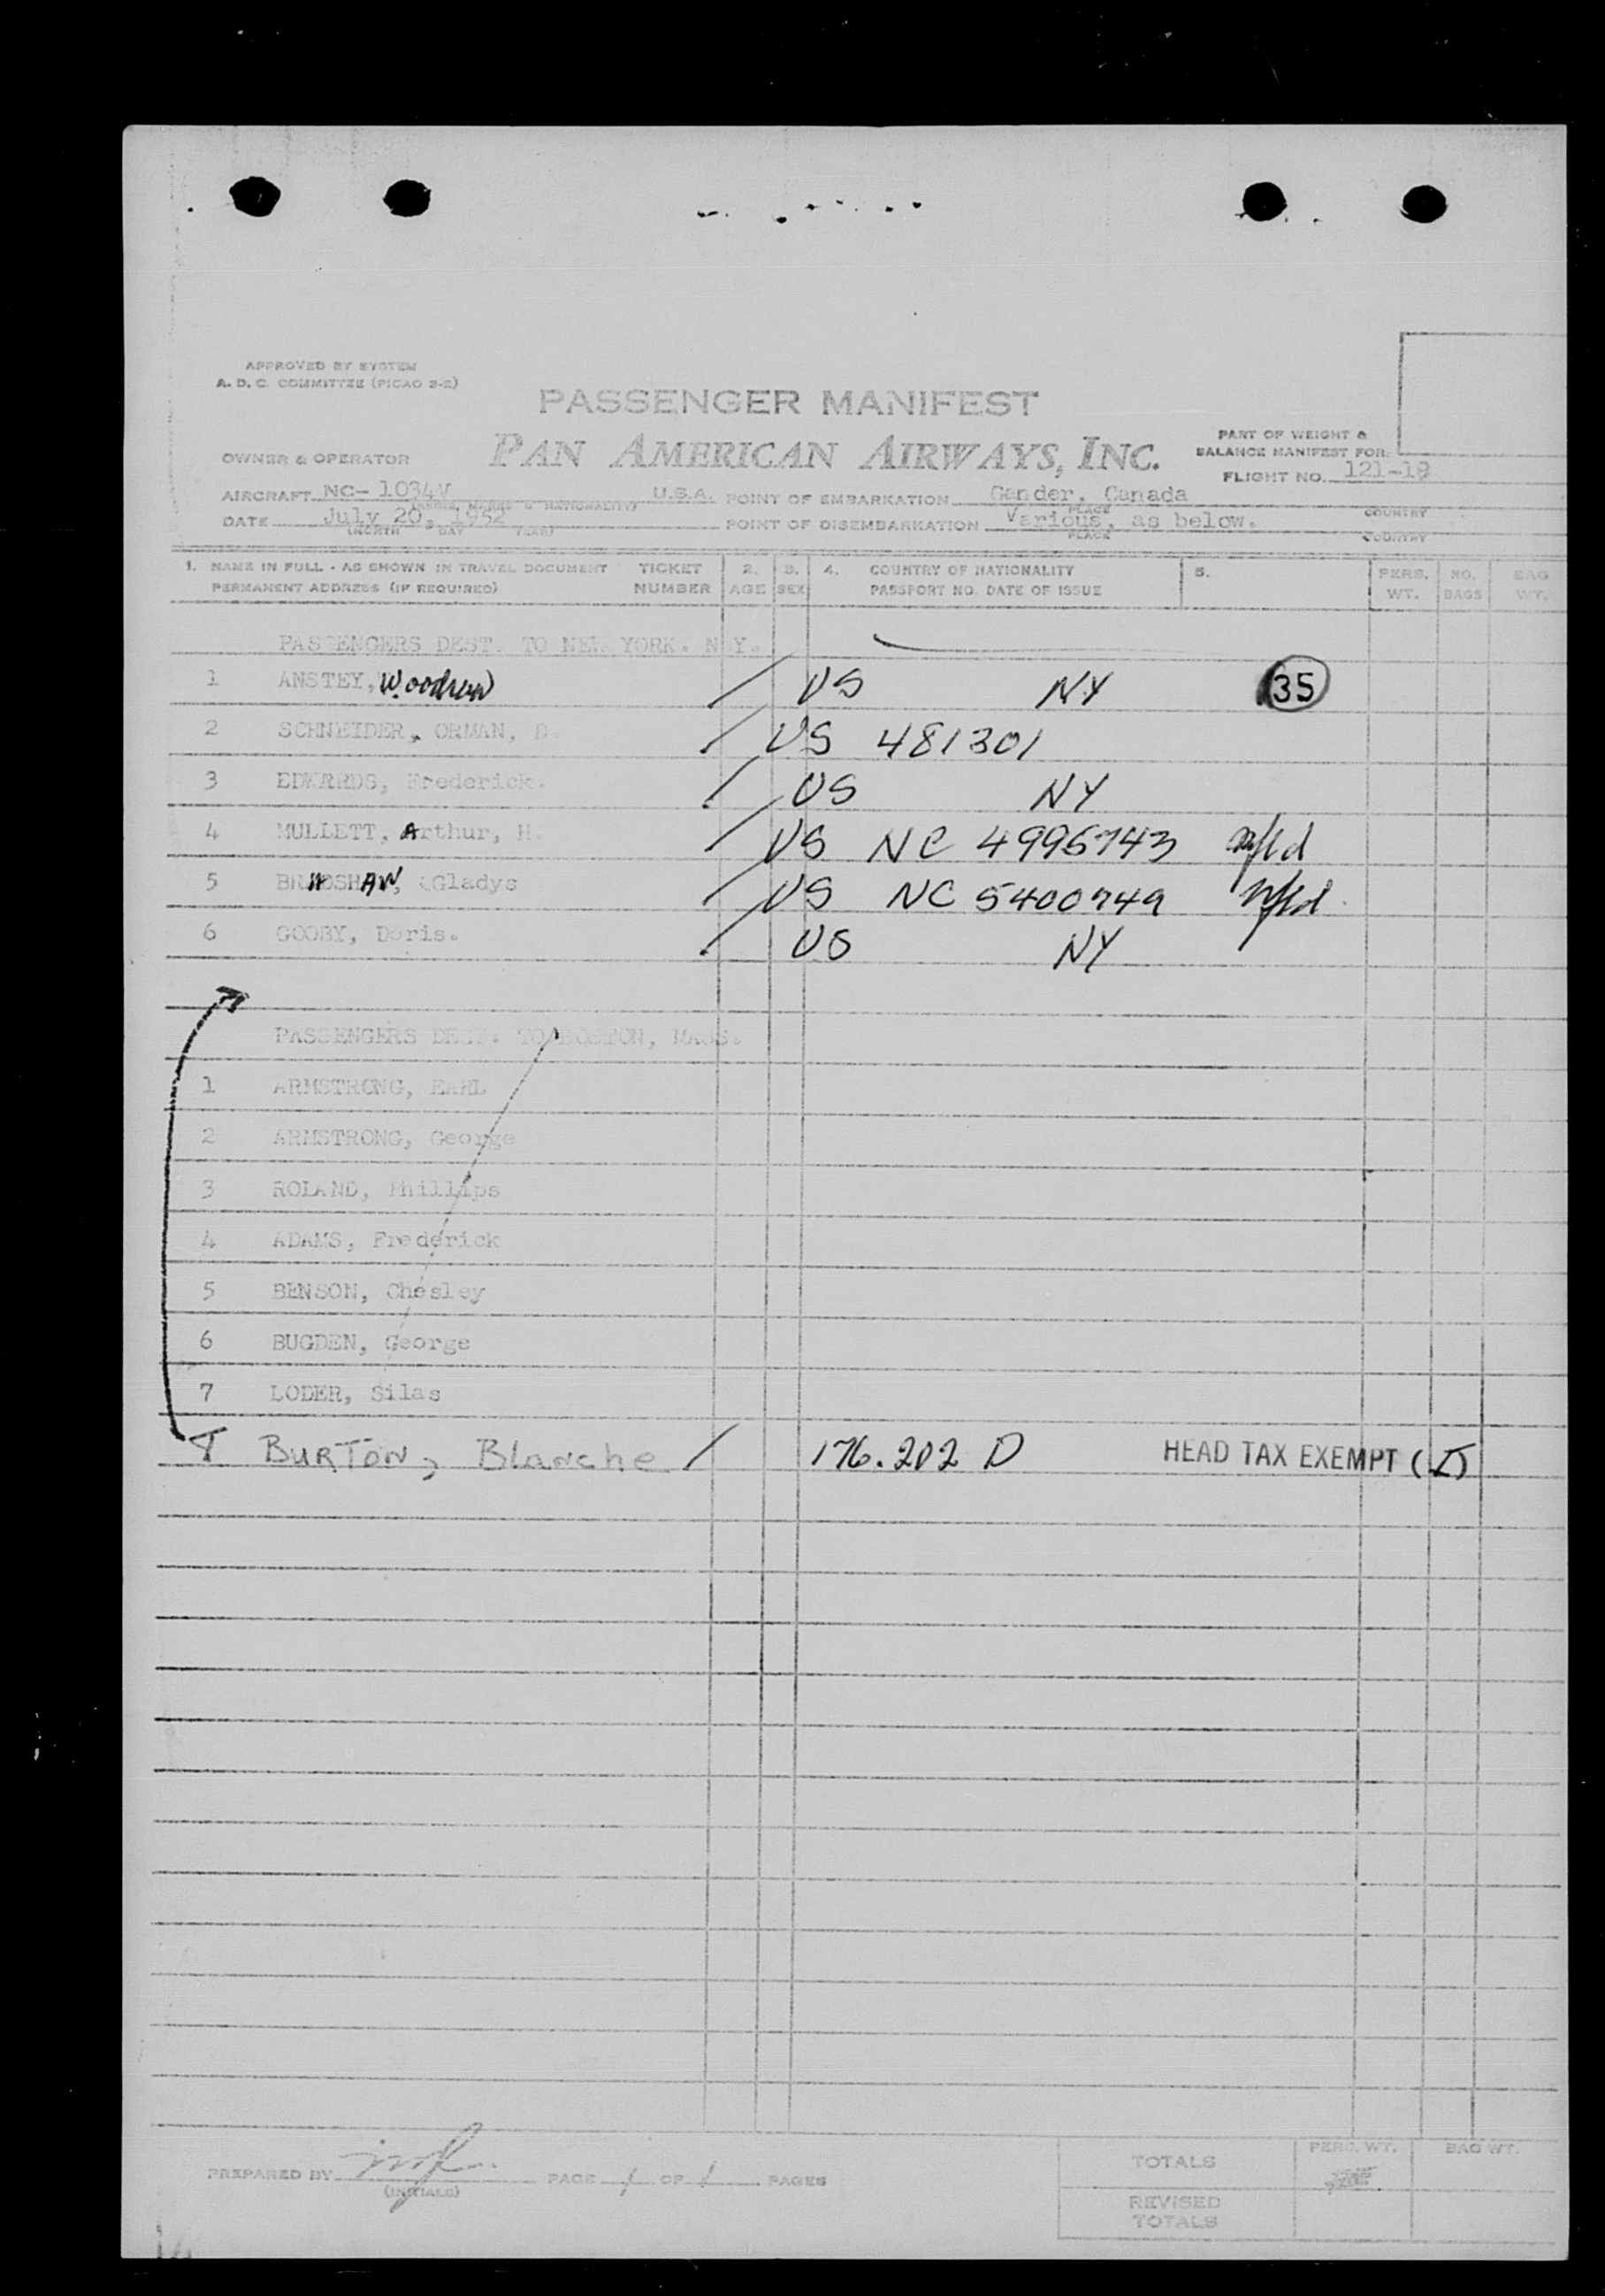 APPROVED BY SYSTEM
A. D. C. COMMITTEE (PICAO 2-2)
PASSENGER MANIFEST
PAN AMERICAN AIRWAYS, INC.
PART OF WEIGHT &
BALANCE MANIFEST FOR
FLIGHT NO. 121-19
OWNER & OPERATOR
AIRCRAFT NC- 1034V U.S.A. POINT OF EMBARKATION Gander, Canada
MARKS & NATIONALITY) PLACE COUNTRY
DATE July 20, 1952 POINT OF DISEMBARKATION Various, as below.
(MONTH DAY YEAR) PLACE COUNTRY
1. NAME IN FULL - AS SHOWN IN TRAVEL DOCUMENT TICKET 2. 3. 4. COUNTRY OF NATIONALITY 5. PERS. NO. BAG
PERMANENT ADDRESS (IF REQUIRED) NUMBER AGE SEX PASSPORT NO. DATE OF ISSUE WT. BAGS WT.
PASSENGERS DEST. TO NEW YORK. N.Y.
1 ANSTEY, Woodrow / US NY 35
2 SCHNEIDER, ORMAN, D. / US 481301
3 EDWARDS, Frederick. / US NY
4 MULLETT, Arthur, H. / US NC 4995743 Nfld
5 BRADSHAW, Gladys / US NC 5400749 Nfld.
6 GOOBY, Doris. / US NY
PASSENGERS DEST. TO BOSTON, MASS.
1 ARMSTRONG, EARL
2 ARMSTRONG, George
3 ROLAND, Phillips
4 ADAMS, Frederick
5 BENSON, Chesley
6 BUGDEN, George
7 LODER, Silas
8 BURTON, Blanche / 176.202 D HEAD TAX EXEMPT (I)
PREPARED BY
(INITIALS)
PAGE 1 OF 1 PAGES
TOTALS PERS. WT. BAG WT.
REVISED
TOTALS